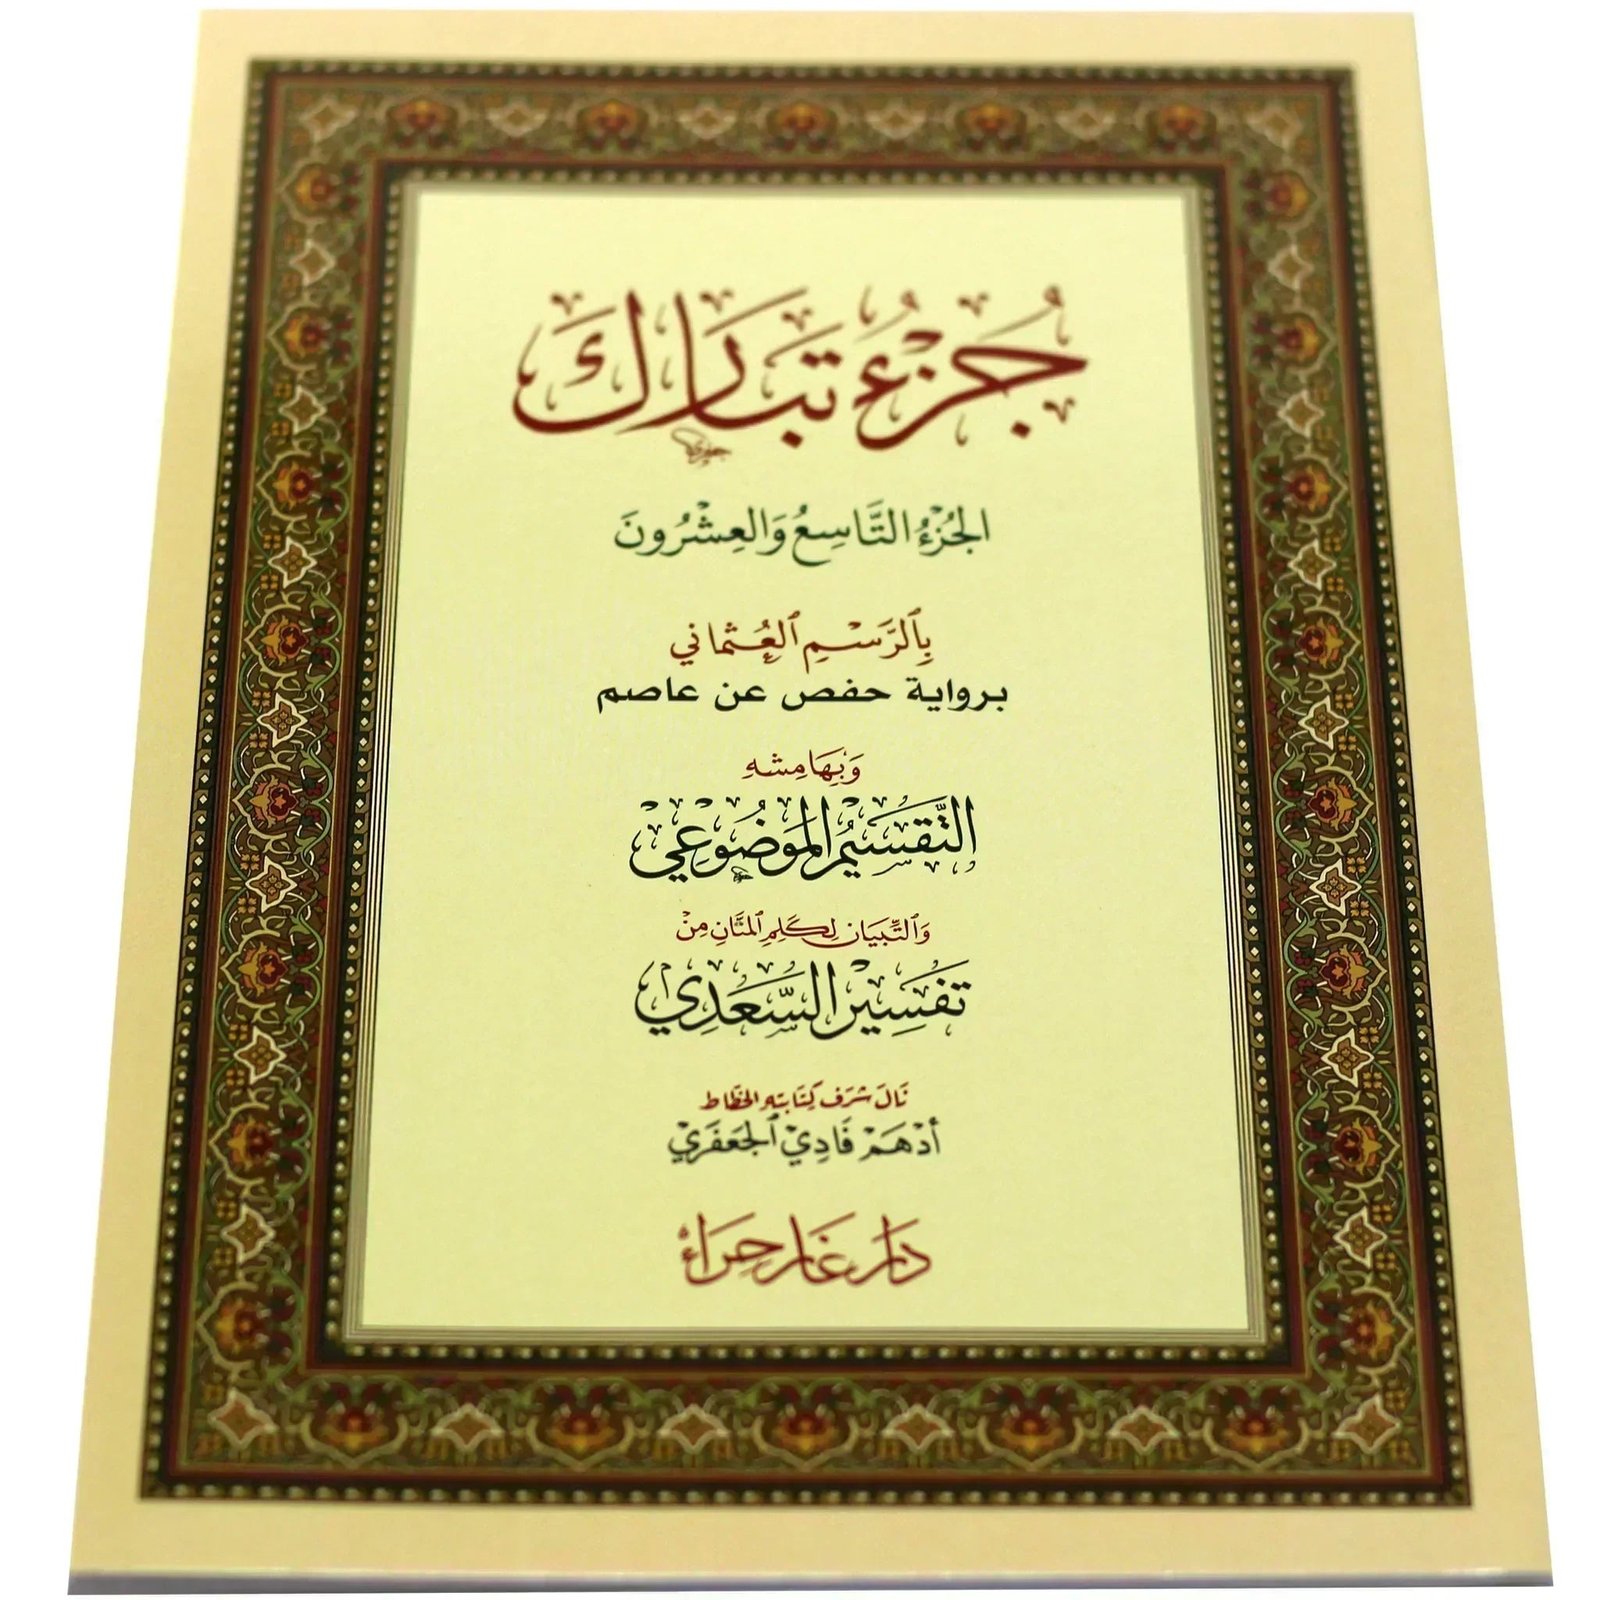 جُزْءُ تَبَارَكَ
الجُزْءُ التَّاسِعُ وَالعِشْرُونَ
بِٱلرَّسْمِ ٱلعُثمَاني
برواية حفص عن عاصم
وَبِهَامِشهِ
التَّقسِيمُ المَوضُوعِي
وَٱلتِّبيَان لِكَلِمِ ٱلمَنَّانِ مِنْ
تَفسِير السَّعَدِي
نَالَ شرَف كِتَابَتهِ الخطَّاط
أدْهَمْ فَادِيْ ٱلجَعفَرِيْ
دَار غَار حِرَاء